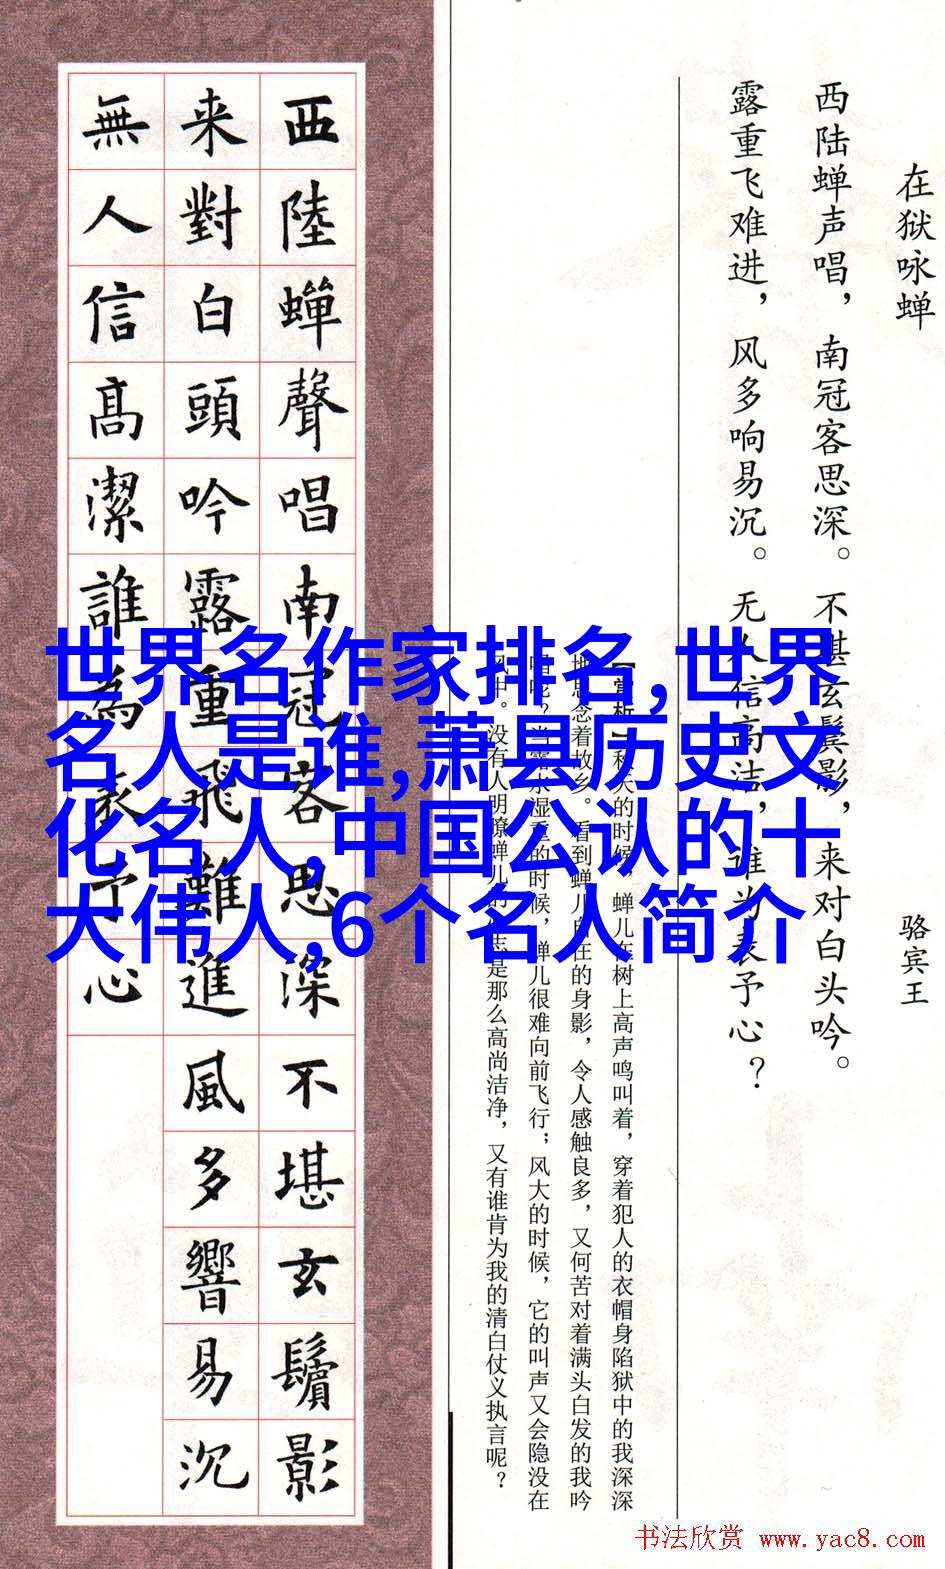 世界名作家排名,世界
名人是谁,萧县历史文
化名人,中国公认的十
大伟人,6个名人简介
在狱咏蝉
骆宾王
西陆蝉声唱，南冠客思深。不堪玄鬓影，来对白头吟。
露重飞难进，风多响易沉。无人信高洁，谁为表予心？
【赏析】秋天的时候，蝉儿在树上高声鸣叫着，穿着犯人的衣帽身陷狱中的我深深
地思念着故乡。看到蝉儿自在的身影，令人感触良多，又何苦对着满头白发的我吟
唱呢？当露水湿重的时候，蝉儿很难向前飞行；风大的时候，它的叫声又会隐没在
风中。没有人明瞭蝉儿的志是那么高尚洁净，又有谁肯为我的清白仗义执言呢？
西陸蟬聲唱南冠客思深不堪玄鬢影
来對白頭吟露重飛難進風多響易沉
無人信髙潔誰為表予心
书法欣赏 www.yac8.com